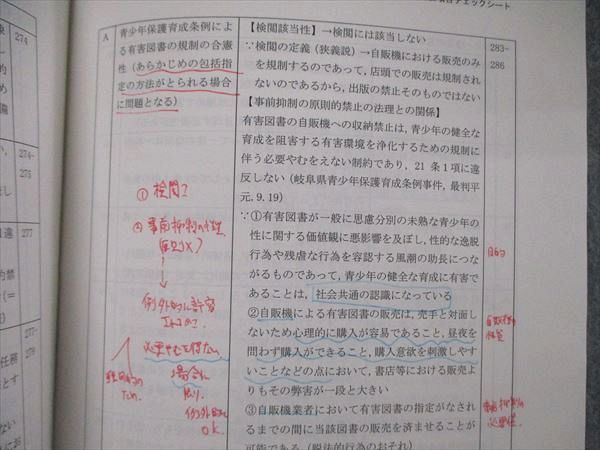 チェックシート
A
青少年保護育成条例によ
る有害図書の規制の合憲
性（あらかじめの包括指
定の方法がとられる場合
に問題となる）
【検閲該当性】→検閲には該当しない
∵検閲の定義（狭義説）→自販機における販売のみ
を規制するのであって，店頭での販売は規制され
ないのであるから，出版の禁止そのものではない
【事前抑制の原則的禁止の法理との関係】
有害図書の自販機への収納禁止は，青少年の健全な
育成を阻害する有害環境を浄化するための規制に
伴う必要やむをえない制約であり，21 条 1 項に違
反しない（岐阜県青少年保護育成条例事件，最判平
元. 9. 19）
∵①有害図書が一般に思慮分別の未熟な青少年の
性に関する価値観に悪影響を及ぼし，性的な逸脱
行為や残虐な行為を容認する風潮の助長につな
がるものであって，青少年の健全な育成に有害で
あることは，社会共通の認識になっている
②自販機による有害図書の販売は，売手と対面し
ないため心理的に購入が容易であること，昼夜を
問わず購入ができること，購入意欲を刺激しやす
いことなどの点において，書店等における販売より
もその弊害が一段と大きい
③自販機業者において有害図書の指定がなされ
るまでの間に当該図書の販売を済ませることが
可能である（脱法的行為のおそれ）
283-
286
274
274-
275
277
277-
279
① 検閲？
② 事前抑制の法理
(原則×)
↓
例外的に許容
必要やむを得ない
場合に
限り、
例外的に
OK.
目的
必要性